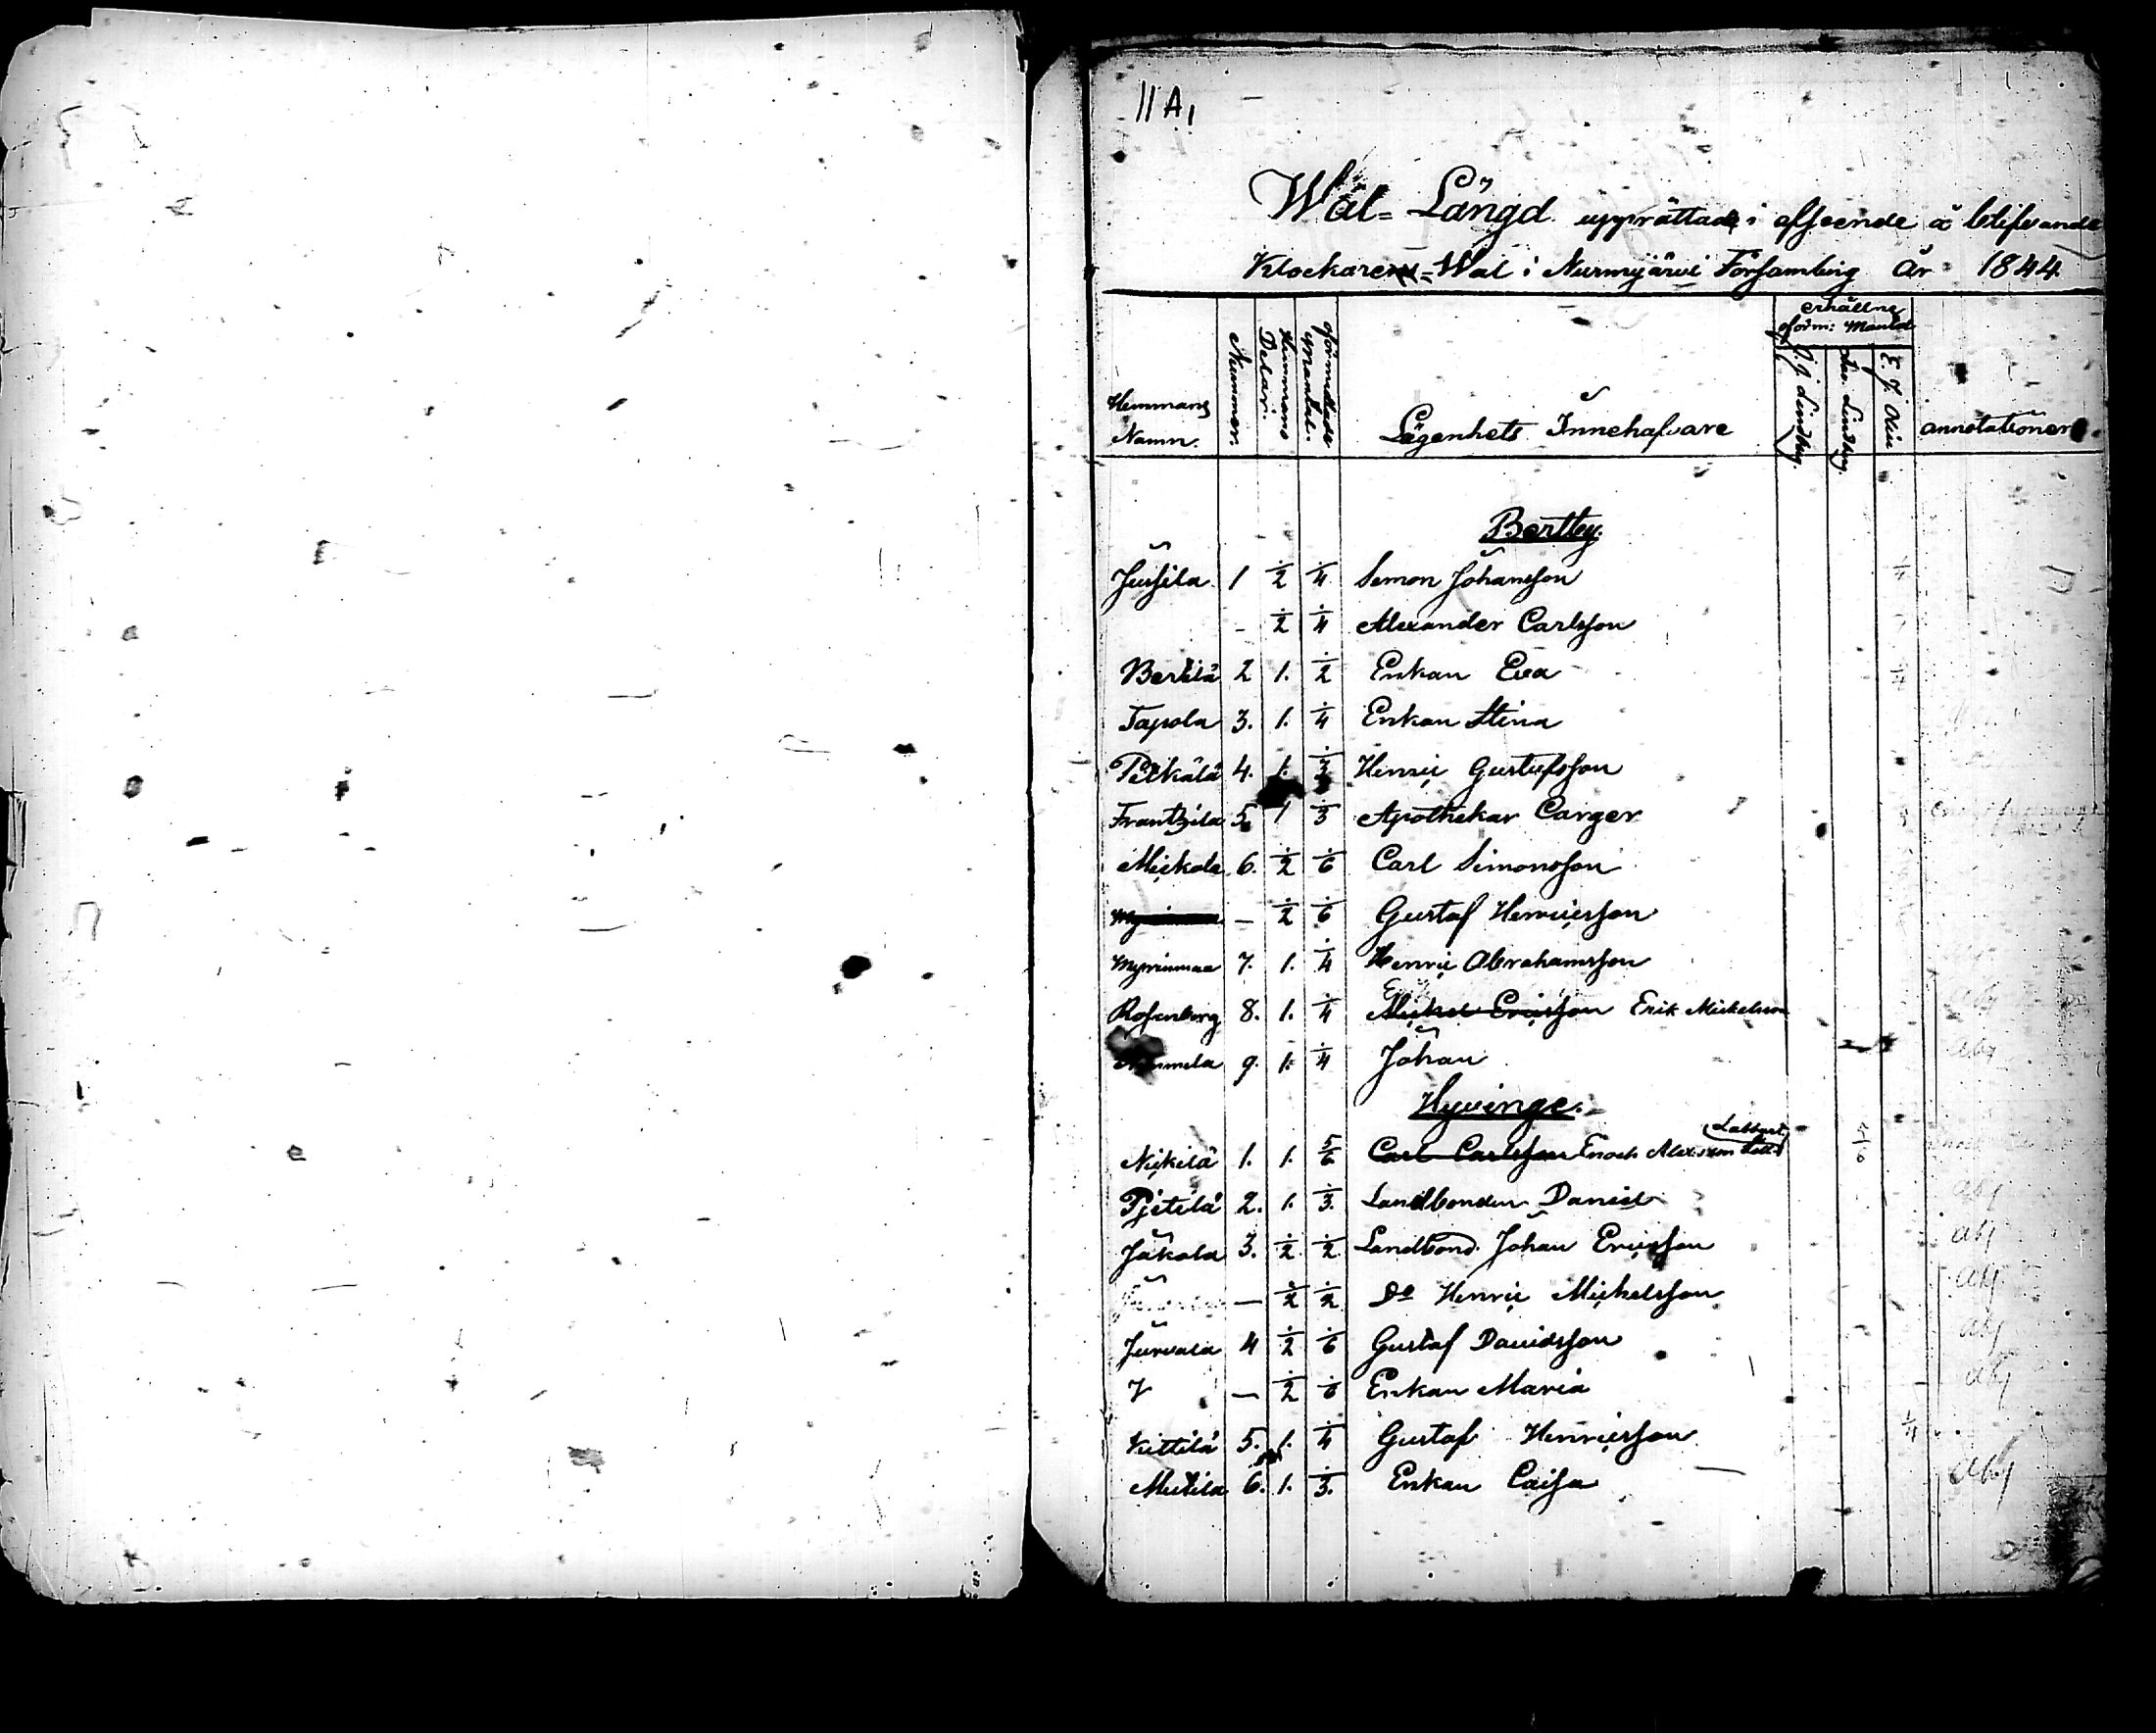 11 A,
Wal- Längd upprättade i afseende å blifvande
Klockare-Wal i Nurmijärvi Församling År 1844
Hemmans Namn. Nummer. Hemmans Delar. oförmedlade Mantal. Lägenhets Innehafvare erhållne oförm: Mantal annotationer
J. J. Lindberg. Lindberg. E. J.
Bertby.
Jussila 1 ½ ¼ Simon Johansson ¼
- ½ ¼ Alexander Carlsson
Bertilä 2 1. ½ Enkan Eva
Tapola 3. 1. ¼ Enkan Stina
Pekkälä 4. 1. Henric Gustafsson
Frantzila 5 1 ⅓ Apothekar Carger
Mickola 6. ½ ⅙ Carl Simonsson
— ½ ⅙ Gustaf Henricsson
Myrinmaa 7. 1. ¼ Henric Abrahamsson
Rosenborg 8. 1. ¼ Mickel Ericsson Erik Mickelsson abj
9. 1. ¼ Johan abj
Hyvinge.
Nickilä 1. 1. 5/6 Carl Carlsson Enoch Alex.
Pjetilä 2. 1. ⅓. Landbonden Daniel abj
Jäkola 3. ½ ½ Landbond. Johan Ericsson abj
— ½ ½ Do Henric Mickelsson abj
Jurvala 4 ½ ⅙ Gustaf Davidsson abj
— ½ ⅙ Enkan Maria abj
Kittilä 5. 1. ¼ Gustaf Henricsson ¼
Mutila 6. 1. ⅓. Enkan Caisa abj